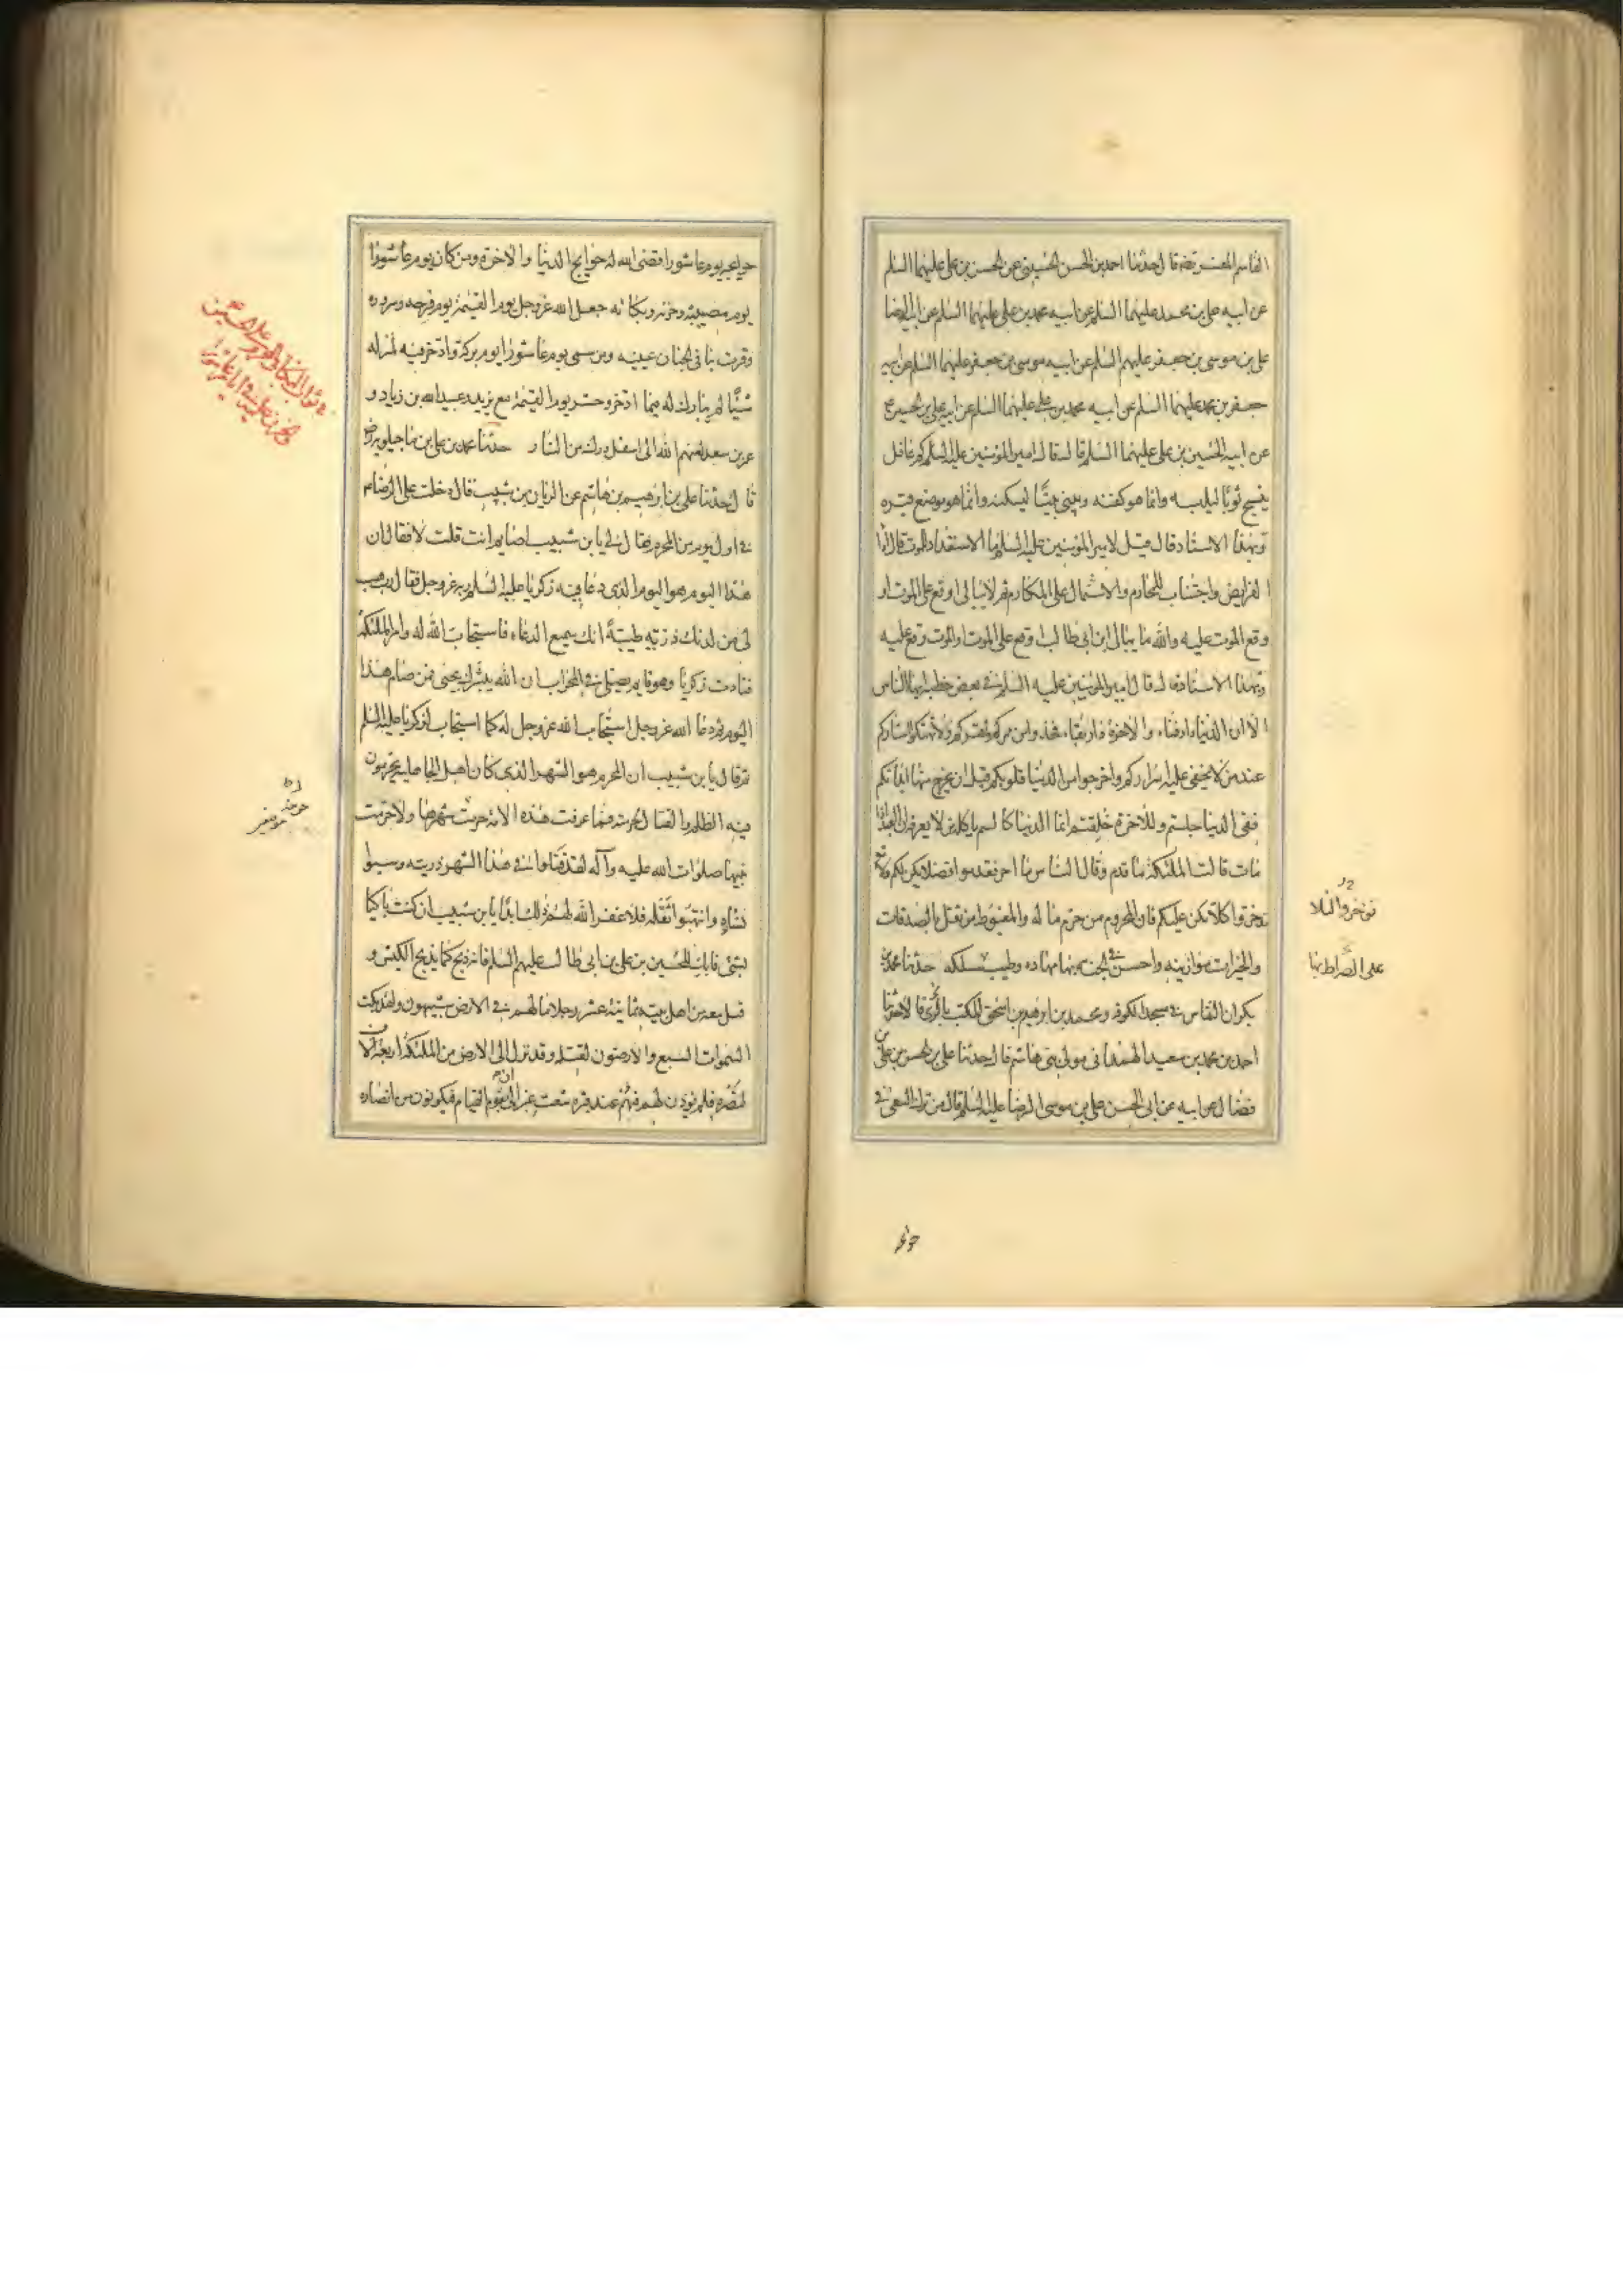 القاسم المفسر رضه قال حدثنا احمد بن الحسن الحسيني عن الحسن بن علي عليهما السلم
عن ابيه علي بن محمد عليهما السلم عن ابيه محمد بن علي عليهما السلم عن ابيه الرضا
علي بن موسى بن جعفر عليهم السلم عن ابيه موسى بن جعفر عليهما السلم عن ابيه
جعفر بن محمد عليهما السلم عن ابيه محمد بن علي عليهما السلم عن ابيه علي بن الحسين ع
عن ابيه الحسين بن علي عليهما السلم قال قال امير المؤمنين عليه السلم كم من غافل
ينسج ثوبًا ليلبسه وانما هو كفنه ويبني بيتًا ليسكنه وانما هو موضع قبره
وبهذا الاسناد قال قيل لامير المؤمنين عليه السلم ما الاستعداد للموت قال اداء
الفرايض واجتناب المحارم والاشتمال على المكارم ثم لا يبالي اوقع على الموت او
وقع الموت عليه والله ما يبالي ابن ابي طالب اوقع على الموت او الموت وقع عليه
وبهذا الاسناد قال قال امير المؤمنين عليه السلم في بعض خطبه ايها الناس
الا ان الدنيا دار فناء والاخرة دار بقاء فخذوا من ممركم لمقركم ولا تهتكوا استاركم
عند من لا يخفى عليه اسراركم واخرجوا من الدنيا قلوبكم قبل ان يخرج منها ابدانكم
ففي الدنيا حييتم وللاخرة خلقتم انما الدنيا كالسم ياكله من لا يعرفه ان العبد اذا
مات قالت الملئكة ما قدم وقال الناس ما اخر فقدموا فضلا يكن لكم ولا
تؤخروا كلا يكن عليكم فان المحروم من حرم خير ماله والمغبوط من ثقل بالصدقات
والخيرات موازينه واحسن في الجنة بها مهاده وطيب مسلكه حدثنا محمد بن
بكران النقاش في مسجد الكوفة ومحمد بن ابرهيم بن اسحق المكتب بالري قالا حدثنا
احمد بن محمد بن سعيد الهمداني مولى بني هاشم قال حدثنا علي بن الحسن بن علي بن
فضال عن ابيه عن ابي الحسن علي بن موسى الرضا عليه السلم قال من ترك السعي في
على الصراط بها
حوايجه يوم عاشورا قضى الله له حوايج الدنيا والاخرة ومن كان يوم عاشورا
يوم مصيبته وحزنه وبكائه جعل الله عز وجل يوم القيمة يوم فرحه وسروره
وقرت بنا في الجنان عينه ومن سمى يوم عاشورا يوم بركة وادخر فيه لمنزله
شيئًا لم يبارك له فيما ادخر وحشر يوم القيمة مع يزيد وعبيد الله بن زياد و
عمر بن سعد لعنهم الله الى اسفل درك من النار حدثنا محمد بن علي بن ماجيلويه رضه
قال حدثنا علي بن ابرهيم بن هاشم عن الريان بن شبيب قال دخلت على الرضا ع
في اول يوم من المحرم فقال لي يا بن شبيب اصايم انت قلت لا فقال ان
هذا اليوم هو اليوم الذي دعا فيه زكريا عليه السلم ربه عز وجل فقال رب هب
لي من لدنك ذرية طيبةً انك سميع الدعاء فاستجاب الله له وامر الملئكة
فنادت زكريا وهو قايم يصلي في المحراب ان الله يبشرك بيحيى فمن صام هذا
اليوم ثم دعا الله عز وجل استجاب الله عز وجل له كما استجاب لزكريا عليه السلم
ثم قال يا بن شبيب ان المحرم هو الشهر الذي كان اهل الجاهلية يحرمون
فيه الظلم والقتال لحرمته فما عرفت هذه الامة حرمة شهرها ولا حرمت
نبيها صلوات الله عليه وآله لقد قتلوا في هذا الشهر ذريته وسبوا
نساءه وانتهبوا ثقله فلا غفر الله لهم ذلك ابدًا يا بن شبيب ان كنت باكيًا
لشئ فابك للحسين بن علي بن ابي طالب عليهم السلم فانه ذبح كما يذبح الكبش و
قتل معه من اهل بيته ثمانية عشر رجلا ما لهم في الارض شبيهون ولقد بكت
السموات السبع والارضون لقتله وقد نزل الى الارض من الملئكة اربعة آلاف
لنصره فلم يؤذن لهم فهم عند قبره شعث غبر الى ان يقوم القيام فيكونون من انصاره